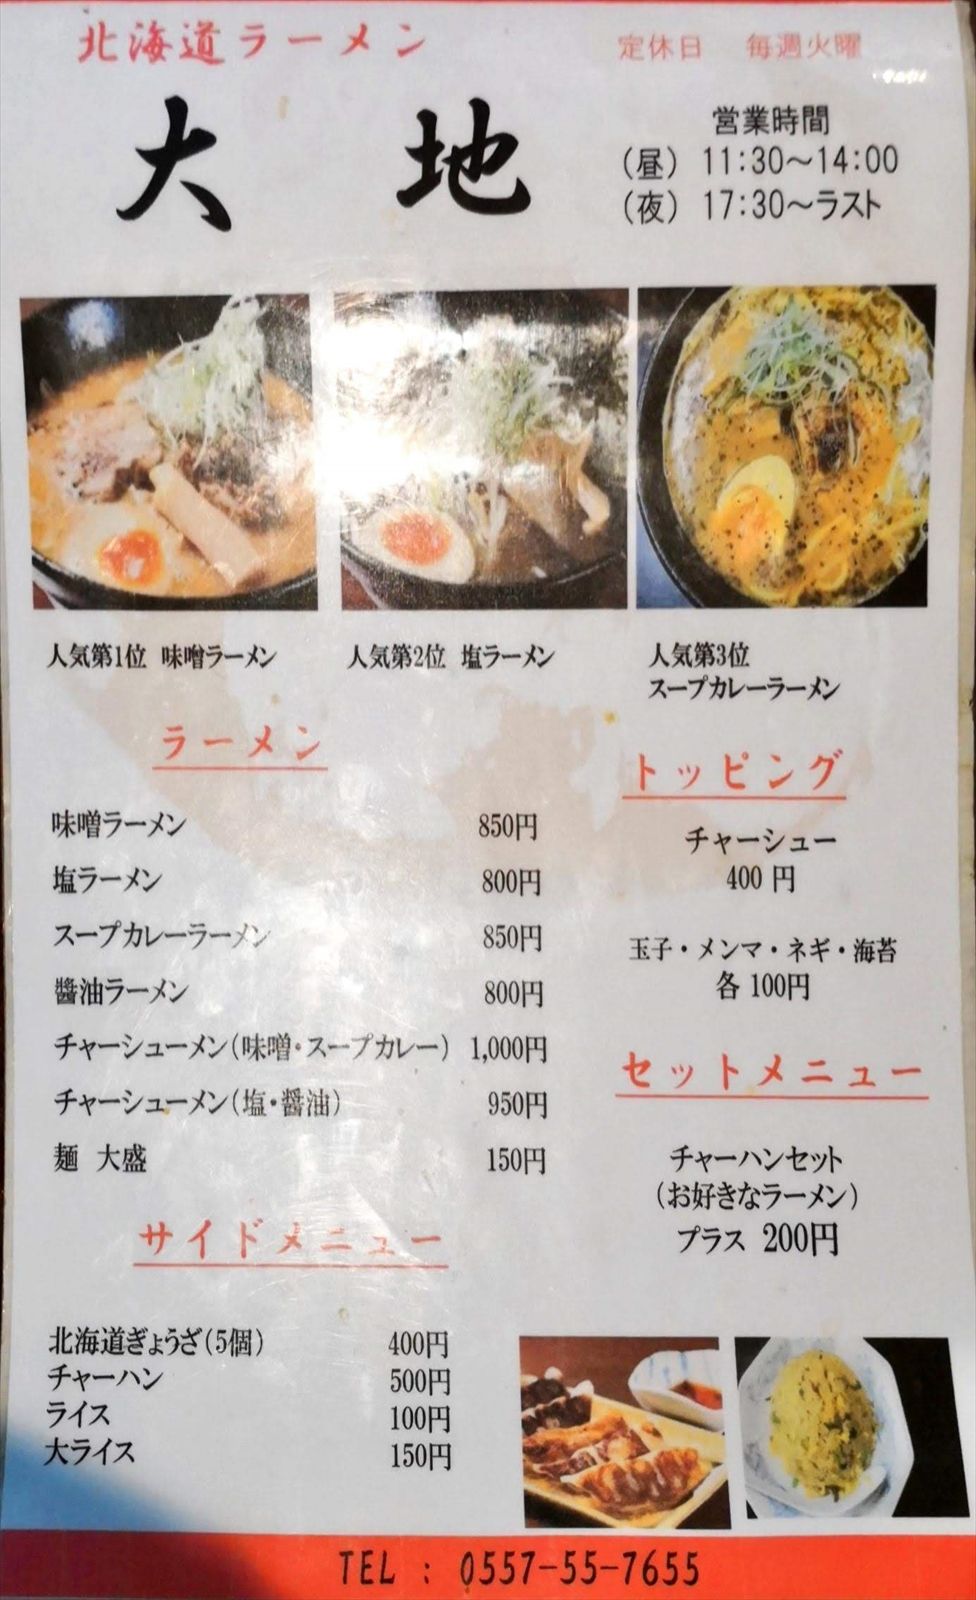 北海道ラーメン
定休日 毎週火曜
大地
営業時間
(昼) 11:30～14:00
(夜) 17:30～ラスト
人気第1位 味噌ラーメン
人気第2位 塩ラーメン
人気第3位
スープカレーラーメン
ラーメン
味噌ラーメン 850円
塩ラーメン 800円
スープカレーラーメン 850円
醬油ラーメン 800円
チャーシューメン(味噌・スープカレー) 1,000円
チャーシューメン(塩・醬油) 950円
麺 大盛 150円
トッピング
チャーシュー
400 円
玉子・メンマ・ネギ・海苔
各 100円
セットメニュー
チャーハンセット
(お好きなラーメン)
プラス 200円
サイドメニュー
北海道ぎょうざ(5個) 400円
チャーハン 500円
ライス 100円
大ライス 150円
TEL : 0557-55-7655